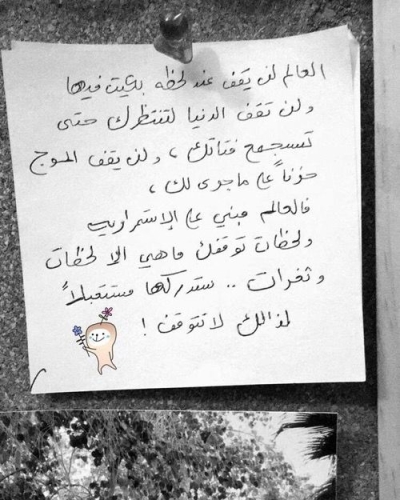 العالم لن يقف عند لحظه بكيت فيها
ولن تقف الدنيا لتنتظرك حتى
تستجمع فتاتك ، ولن يقف الموج
حزناً على ماجرى لك ،
فالعالم مبني على الإستمراريه
ولحظات توقفك ماهي الا لحظات
وثغرات .. ستدركها مستقبلاً
لذالك لا تتوقف !